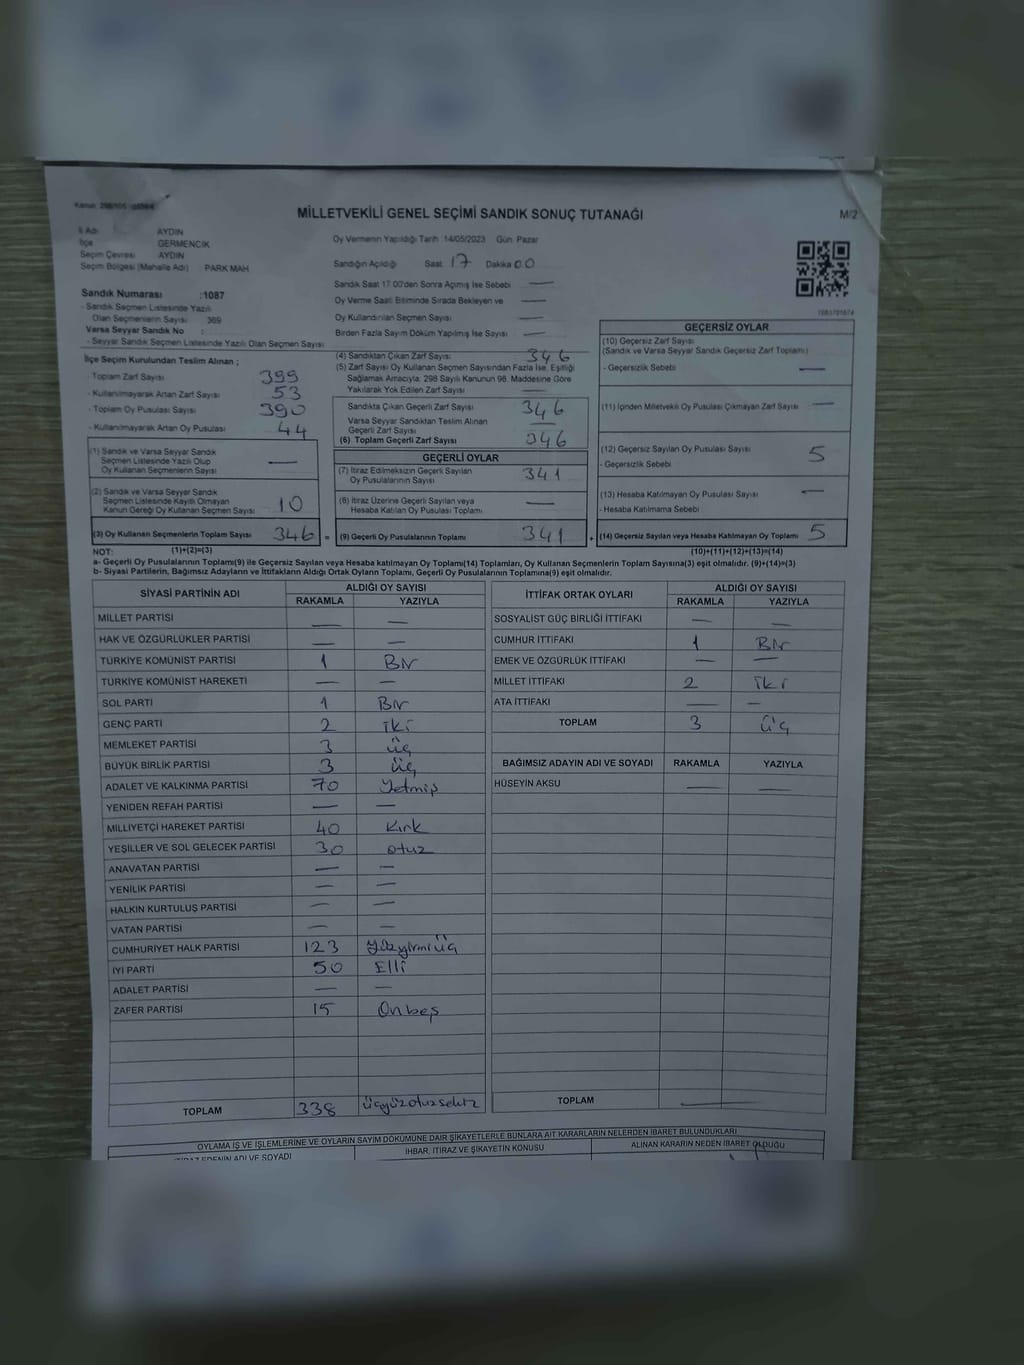 MİLLETVEKİLİ GENEL SEÇİMİ SANDIK SONUÇ TUTANAĞI
M/2
İl Adı AYDIN
İlçe GERMENCİK
Seçim Çevresi AYDIN
Seçim Bölgesi (Mahalle Adı) PARK MAH
Oy Vermenin Yapıldığı Tarih :14/05/2023 Gün: Pazar
Sandığın Açıldığı Saat 17 Dakika 00
Sandık Saat 17:00'den Sonra Açımış İse Sebebi —
Oy Verme Saati Bitiminde Sırada Bekleyen ve —
Oy Kullandırılan Seçmen Sayısı —
Birden Fazla Sayım Döküm Yapılmış İse Sayısı —
Sandık Numarası :1087
- Sandık Seçmen Listesinde Yazılı
Olan Seçmenlerin Sayısı 369
Varsa Seyyar Sandık No :
- Seyyar Sandık Seçmen Listesinde Yazılı Olan Seçmen Sayısı
İlçe Seçim Kurulundan Teslim Alınan ;
- Toplam Zarf Sayısı 399
- Kullanılmayarak Artan Zarf Sayısı 53
- Toplam Oy Pusulası Sayısı 390
- Kullanılmayarak Artan Oy Pusulası 44
(1) Sandık ve Varsa Seyyar Sandık
Seçmen Listesinde Yazılı Olup
Oy Kullanan Seçmenlerin Sayısı —
(2) Sandık ve Varsa Seyyar Sandık
Seçmen Listesinde Kayıtlı Olmayan
Kanun Gereği Oy Kullanan Seçmen Sayısı 10
(3) Oy Kullanan Seçmenlerin Toplam Sayısı 346 =
(4) Sandıktan Çıkan Zarf Sayısı 346
(5) Zarf Sayısı Oy Kullanan Seçmen Sayısından Fazla İse, Eşitliği
Sağlamak Amacıyla, 298 Sayılı Kanunun 98. Maddesine Göre
Yakılarak Yok Edilen Zarf Sayısı —
Sandıkta Çıkan Geçerli Zarf Sayısı 346
Varsa Seyyar Sandıktan Teslim Alınan
Geçerli Zarf Sayısı —
(6) Toplam Geçerli Zarf Sayısı 346
GEÇERLİ OYLAR
(7) İtiraz Edilmeksizin Geçerli Sayılan
Oy Pusulalarının Sayısı 341
(8) İtiraz Üzerine Geçerli Sayılan veya
Hesaba Katılan Oy Pusulası Toplamı —
(9) Geçerli Oy Pusulalarının Toplamı 341 +
GEÇERSİZ OYLAR
(10) Geçersiz Zarf Sayısı
(Sandık ve Varsa Seyyar Sandık Geçersiz Zarf Toplamı)
- Geçersizlik Sebebi —
(11) İçinden Milletvekili Oy Pusulası Çıkmayan Zarf Sayısı —
(12) Geçersiz Sayılan Oy Pusulası Sayısı 5
- Geçersizlik Sebebi
(13) Hesaba Katılmayan Oy Pusulası Sayısı —
- Hesaba Katılmama Sebebi
(14) Geçersiz Sayılan veya Hesaba Katılmayan Oy Toplamı 5
NOT: (1)+(2)=(3) (10)+(11)+(12)+(13)=(14)
a- Geçerli Oy Pusulaları Toplamı(9) ile Geçersiz Sayılan veya Hesaba katılmayan Oy Toplamı(14) Toplamları, Oy Kullanan Seçmenlerin Toplam Sayısına(3) eşit olmalıdır. (9)+(14)=(3)
b- Siyasi Partilerin, Bağımsız Adayların ve İttifakların Aldığı Ortak Oyların Toplamı, Geçerli Oy Pusulalarının Toplamına(9) eşit olmalıdır.
SİYASİ PARTİNİN ADI ALDIĞI OY SAYISI
RAKAMLA YAZIYLA
MİLLET PARTİSİ — —
HAK VE ÖZGÜRLÜKLER PARTİSİ — —
TÜRKİYE KOMÜNİST PARTİSİ 1 Bir
TÜRKİYE KOMÜNİST HAREKETİ — —
SOL PARTİ 1 Bir
GENÇ PARTİ 2 iki
MEMLEKET PARTİSİ 3 üç
BÜYÜK BİRLİK PARTİSİ 3 üç
ADALET VE KALKINMA PARTİSİ 70 Yetmiş
YENİDEN REFAH PARTİSİ — —
MİLLİYETÇİ HAREKET PARTİSİ 40 Kırk
YEŞİLLER VE SOL GELECEK PARTİSİ 30 otuz
ANAVATAN PARTİSİ — —
YENİLİK PARTİSİ — —
HALKIN KURTULUŞ PARTİSİ — —
VATAN PARTİSİ — —
CUMHURİYET HALK PARTİSİ 123 Yüzyirmiüç
İYİ PARTİ 50 Elli
ADALET PARTİSİ — —
ZAFER PARTİSİ 15 Onbeş
TOPLAM 338 üçyüzotuzsekiz
İTTİFAK ORTAK OYLARI ALDIĞI OY SAYISI
RAKAMLA YAZIYLA
SOSYALİST GÜÇ BİRLİĞİ İTTİFAKI — —
CUMHUR İTTİFAKI 1 Bir
EMEK VE ÖZGÜRLÜK İTTİFAKI — —
MİLLET İTTİFAKI 2 iki
ATA İTTİFAKI — —
TOPLAM 3 üç
BAĞIMSIZ ADAYIN ADI VE SOYADI RAKAMLA YAZIYLA
HÜSEYİN AKSU — —
TOPLAM —
OYLAMA İŞ VE İŞLEMLERİNE VE OYLARIN SAYIM DÖKÜMÜNE DAİR ŞİKAYETLERLE BUNLARA AİT KARARLARIN NELERDEN İBARET BULUNDUKLARI
ADI VE SOYADI İHBAR, İTİRAZ VE ŞİKAYETİN KONUSU ALINAN KARARIN NEDEN İBARET OLDUĞU